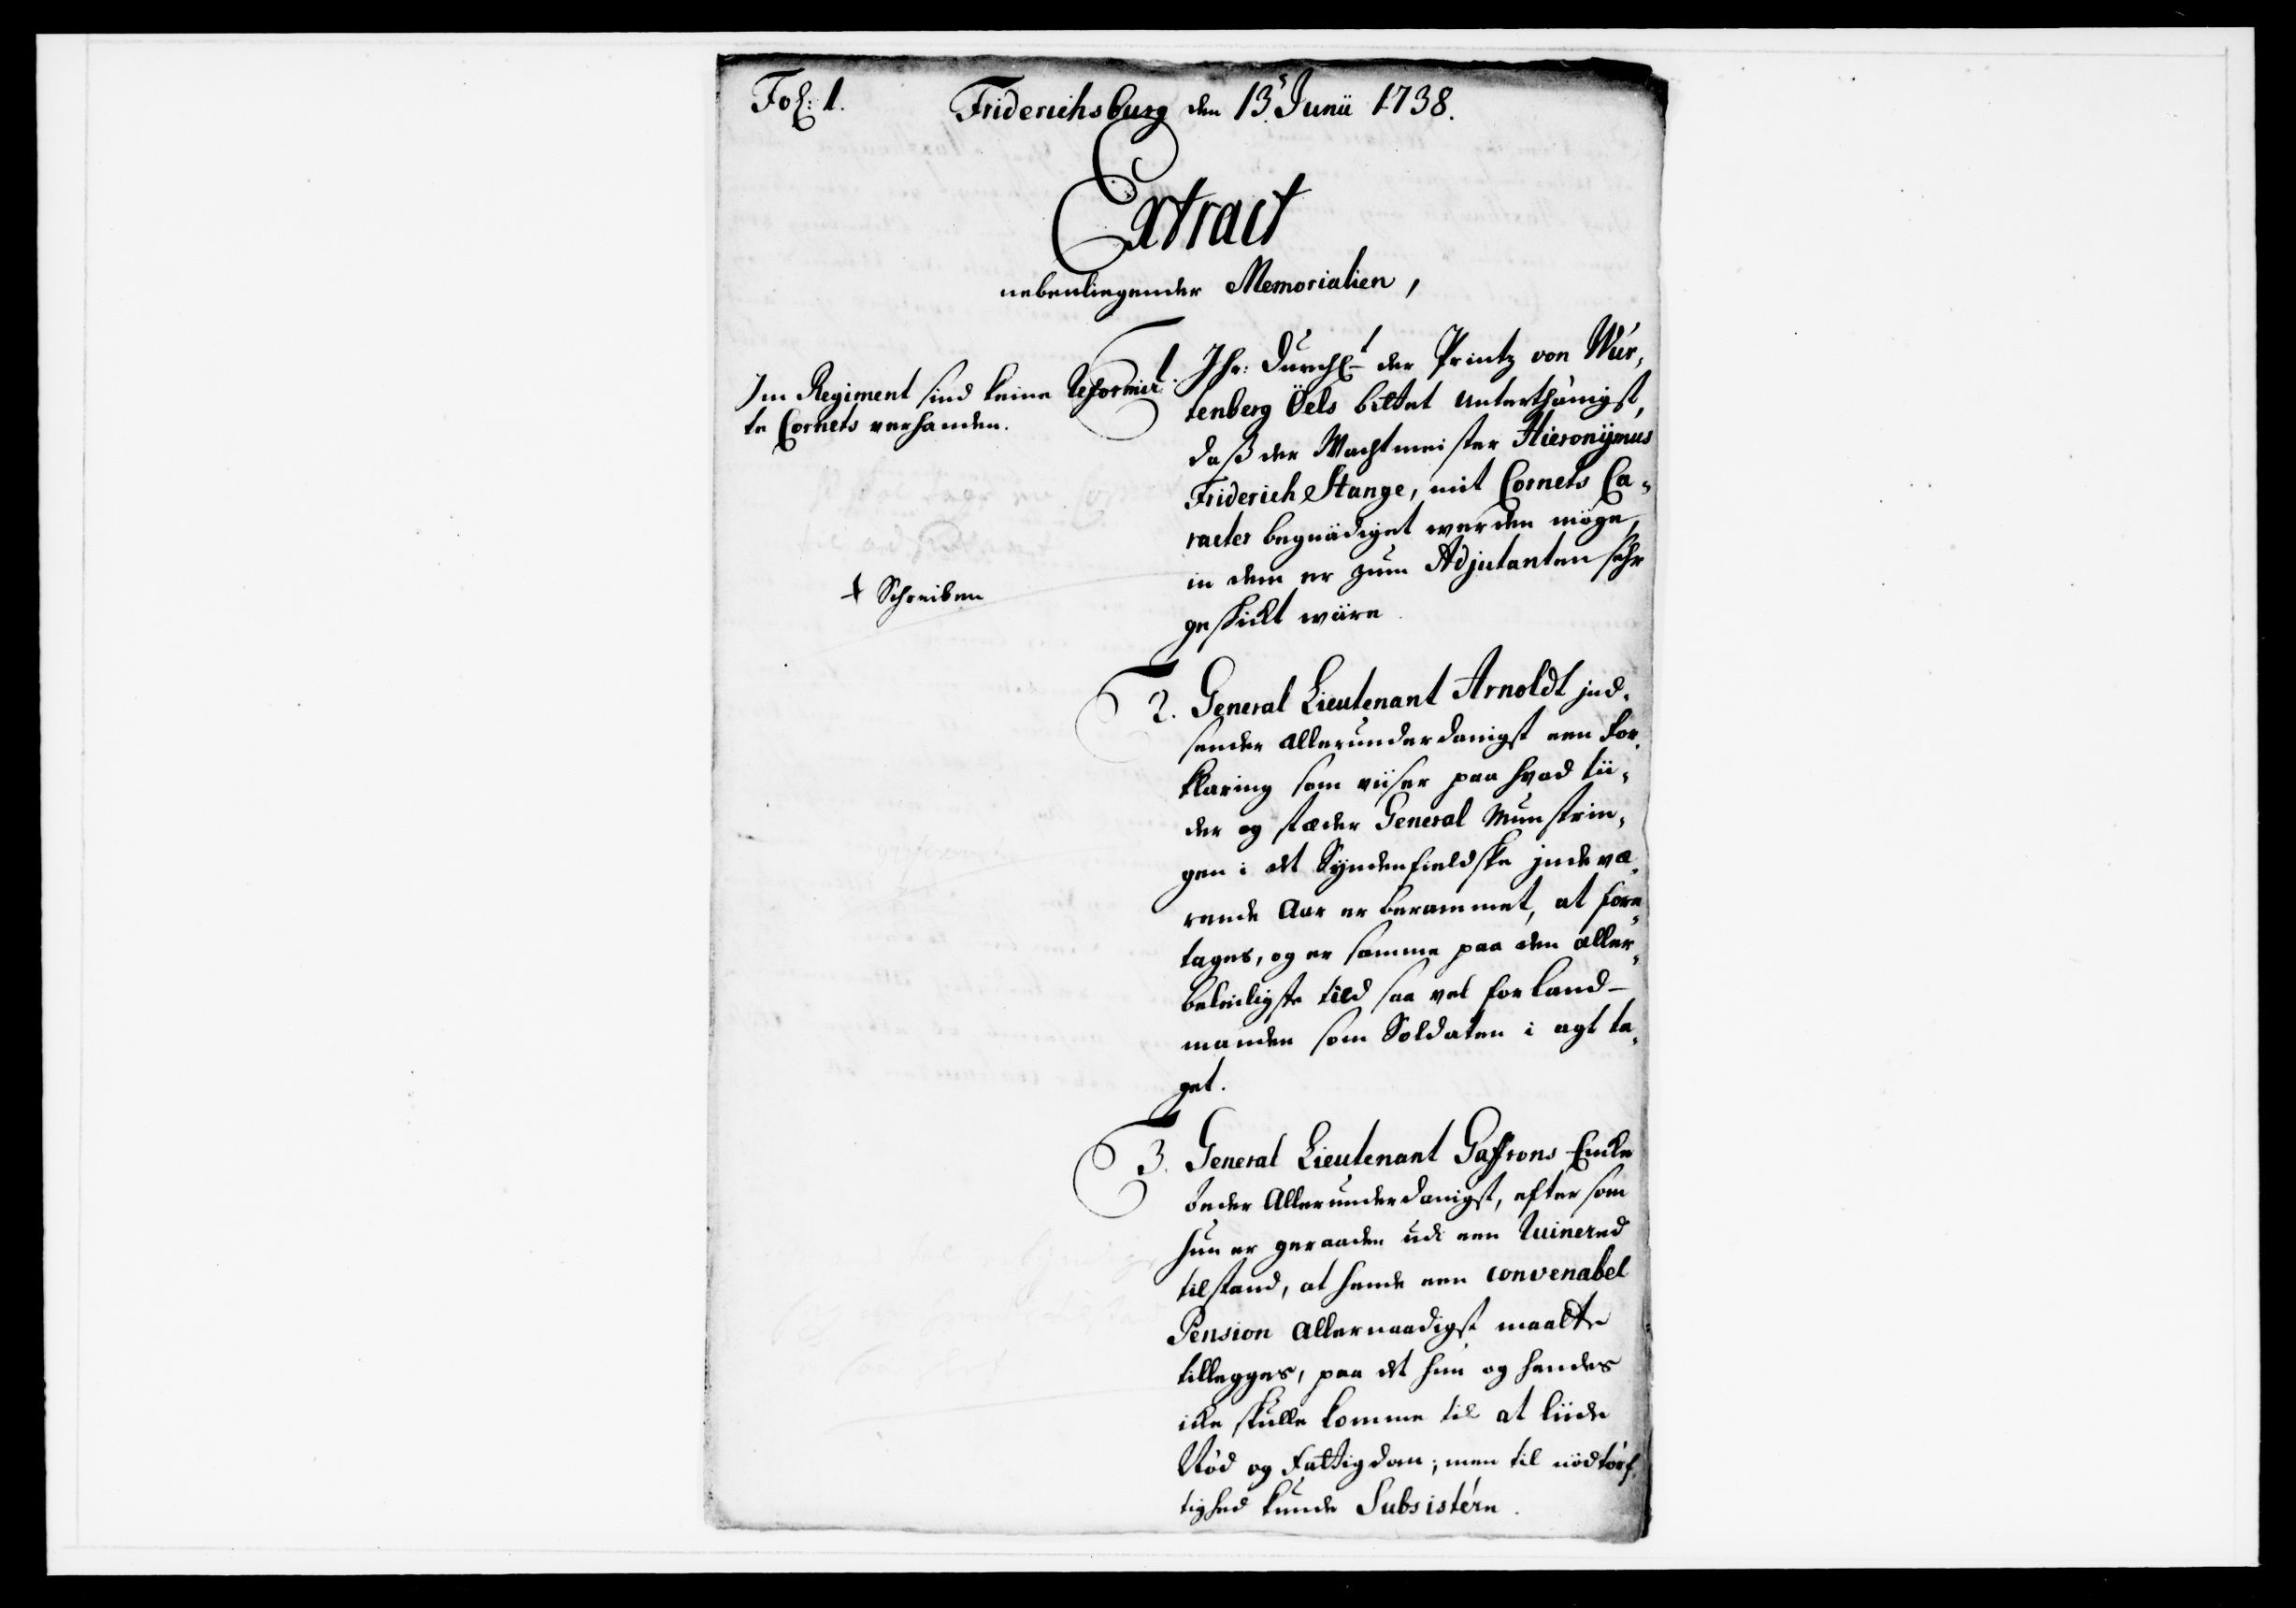 Fol: 1.
Friderichsburg den 13.s Junii 1738.
Extract
nebenliegender Memorialien,
Im Regiment sind keine Reformir
te Cornets verhanden.
+ Schreiben
1. Ihr: Durchl. der Printz von Wür,
tenberg Öels bittet unterthänigst,
daß der Wachtmeister Hieronijmus
Friderich Stange, mit Cornets Ca,
racter begnädiget werden möge,
in dem er zum Adjutanten sehr
geschickt wäre.
2. General Lieutenant Arnoldt ind,
sender allerunderdanigst een For,
klaring som viiser paa hvad tii,
der og stæder General Munstrin,
gen i det Syndenfieldske indevæ,
rende Aar er berammet, at fore,
tages, og er samme paa den aller,
beleiligste tiid saa vel for land-
manden som Soldaten i agt ta,
get.
3. General Lieutenant Gaffrons Encke
beder Allerunderdanigst, efter som
hun er geraaden udi een Ruinered
tilstand, at hende een convenabel
Pension Allernaadigst maatte
tillegges, paa det hun og hendes
icke skulle komme til at liide
Nöd og Fattigdom; men til nödtörf,
tighed kunde Subsistére.